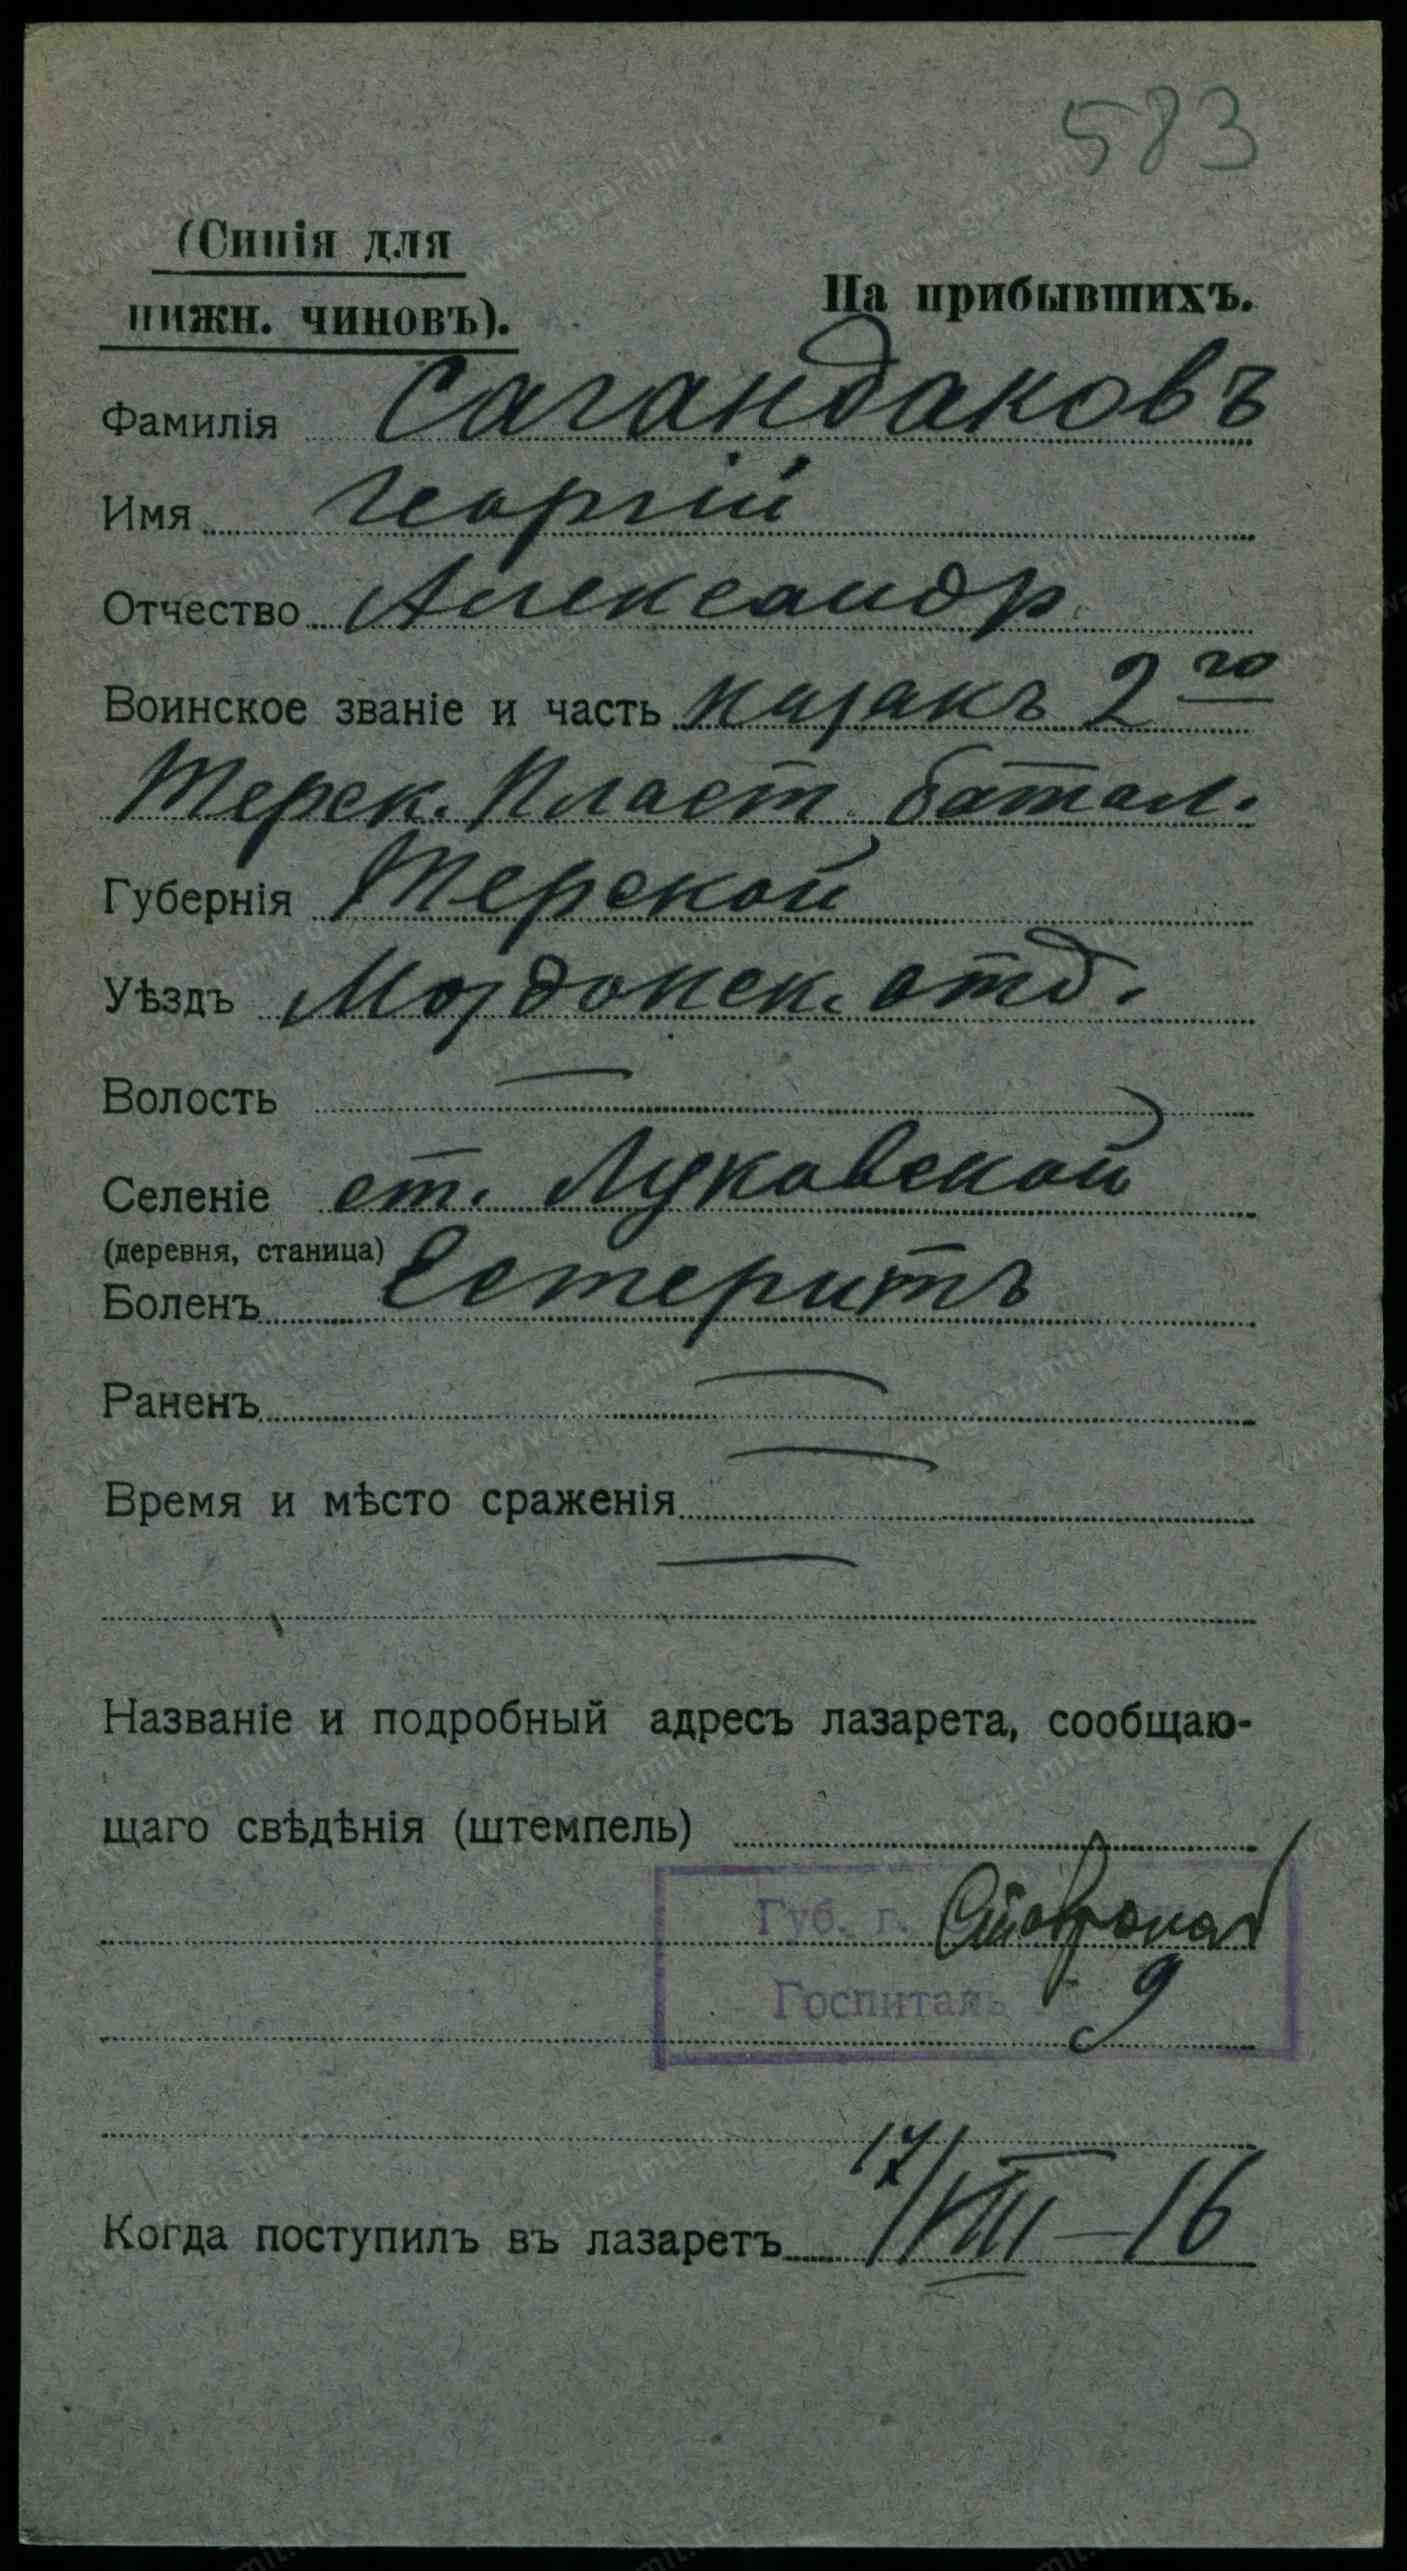 583
(Синія для
нижн. чиновъ).
На прибывшихъ.
Фамилія Сагандаковъ
Имя Георгій
Отчество Александр
Воинское званіе и часть казакъ 2го
Терек. Пласт. батал.
Губернія Терской
Уѣздъ Моздокск. отд.
Волость —
Селеніе ст. Луковской
(деревня, станица)
Боленъ Естеритъ
Раненъ —
Время и мѣсто сраженія —
—
Названіе и подробный адресъ лазарета, сообщаю-
щаго свѣдѣнія (штемпель)
Губ. г. Ставропол
Госпиталь 9
Когда поступилъ въ лазаретъ 17/VIII—16